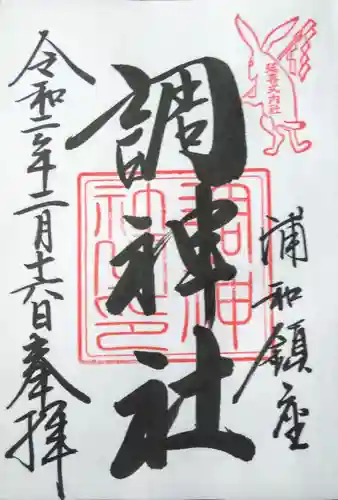 延喜式内社
浦和鎮座
調神社
調神社之印
令和二年二月十六日奉拝